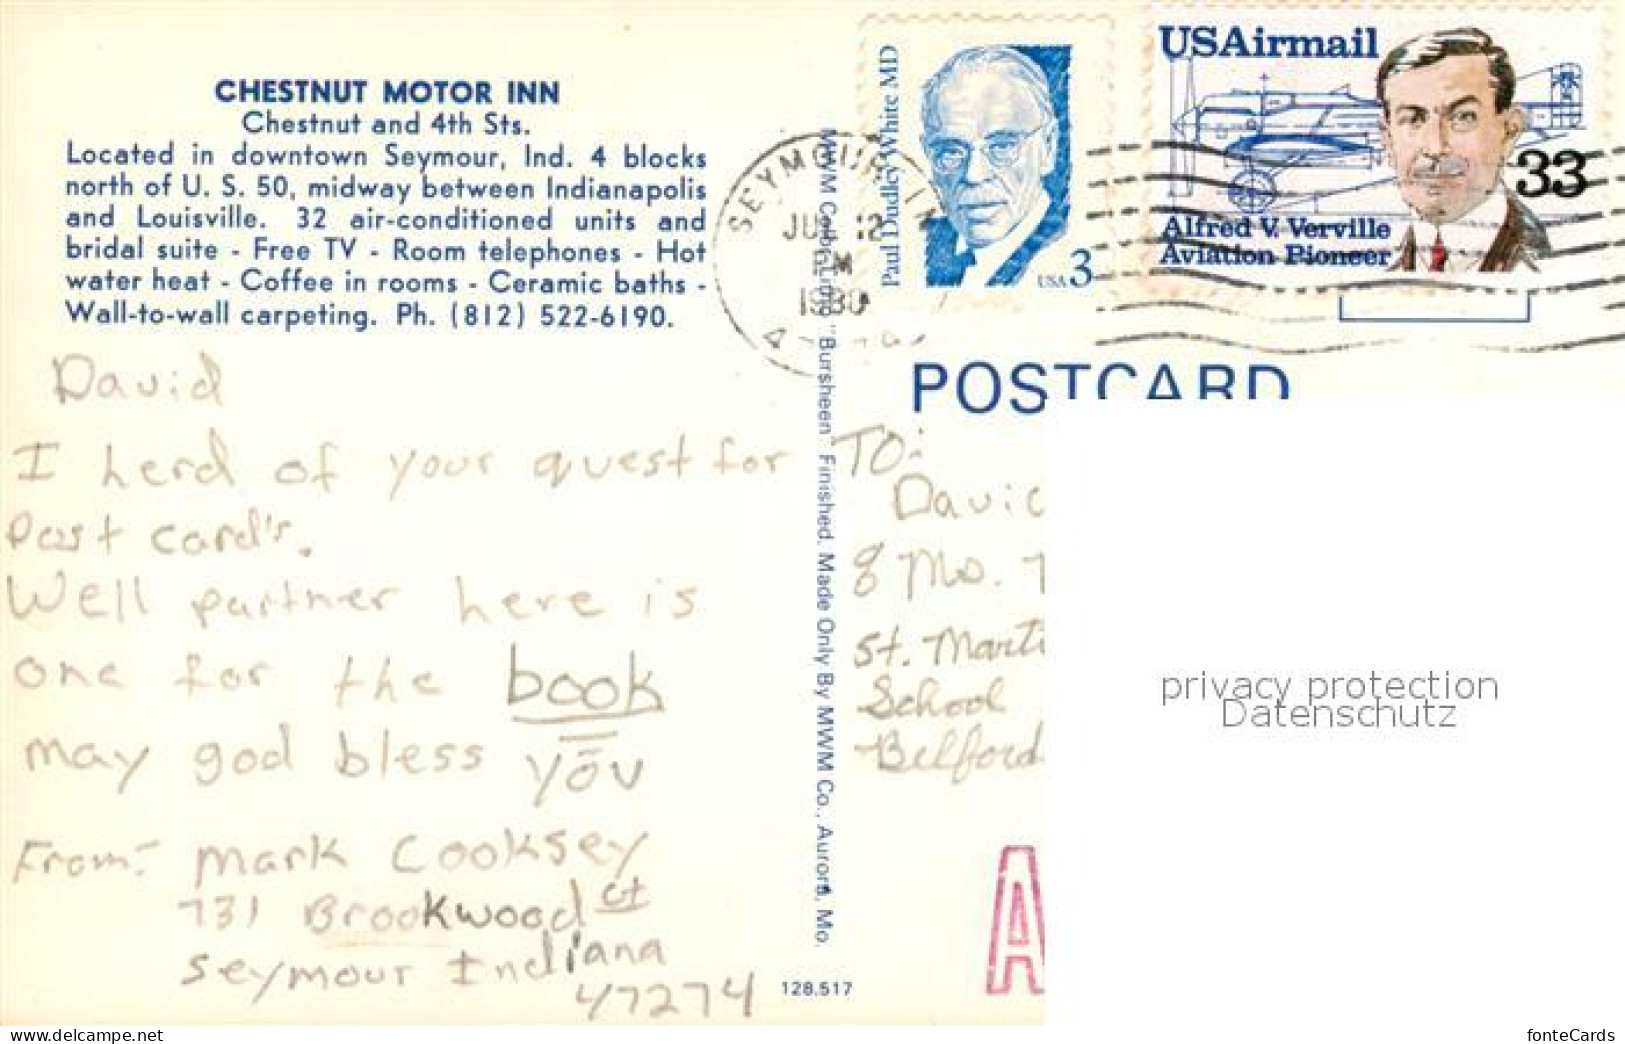 CHESTNUT MOTOR INN
Chestnut and 4th Sts.
Located in downtown Seymour, Ind. 4 blocks
north of U. S. 50, midway between Indianapolis
and Louisville. 32 air-conditioned units and
bridal suite - Free TV - Room telephones - Hot
water heat - Coffee in rooms - Ceramic baths -
Wall-to-wall carpeting. Ph. (812) 522-6190.
David
I herd of your quest for
Post card's.
Well partner here is
one for the book
may god bless you
From: Mark Cooksey
731 Brookwood ct
Seymour Indiana
47274
"Bursheen" Finished. Made Only By MWM Co., Aurora, Mo.
128,517
SEYMOUR IN
12
PM
Paul Dudley White MD
USA 3
USAirmail
33
Alfred V. Verville
Aviation Pioneer
POSTCARD
TO:
David
8 Mo.
St. Marti
School
Belford
A
privacy protection
Datenschutz
www.delcampe.net
fonteCards